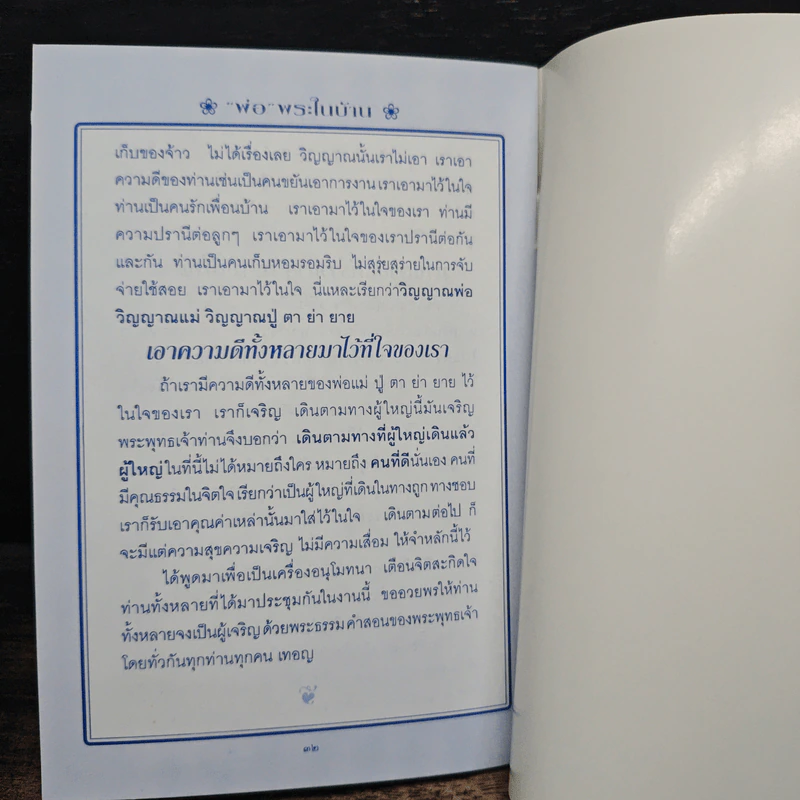 "พ่อ" พระในบ้าน
เก็บของจ้าว ไม่ได้เรื่องเลย วิญญาณนั้นเราไม่เอา เราเอา
ความดีของท่านเช่นเป็นคนขยันเอาการงาน เราเอามาไว้ในใจ
ท่านเป็นคนรักเพื่อนบ้าน เราเอามาไว้ในใจของเรา ท่านมี
ความปรานีต่อลูกๆ เราเอามาไว้ในใจของเราปรานีต่อกัน
และกัน ท่านเป็นคนเก็บหอมรอมริบ ไม่สุรุ่ยสุร่ายในการจับ
จ่ายใช้สอย เราเอามาไว้ในใจ นี่แหละเรียกว่าวิญญาณพ่อ
วิญญาณแม่ วิญญาณปู่ ตา ย่า ยาย
เอาความดีทั้งหลายมาไว้ที่ใจของเรา
ถ้าเรามีความดีทั้งหลายของพ่อแม่ ปู่ ตา ย่า ยาย ไว้
ในใจของเรา เราก็เจริญ เดินตามทางผู้ใหญ่นี้มันเจริญ
พระพุทธเจ้าท่านจึงบอกว่า เดินตามทางที่ผู้ใหญ่เดินแล้ว
ผู้ใหญ่ในที่นี้ไม่ได้หมายถึงใคร หมายถึง คนที่ดีนั่นเอง คนที่
มีคุณธรรมในจิตใจ เรียกว่าเป็นผู้ใหญ่ที่เดินในทางถูกทางชอบ
เราก็รับเอาคุณค่าเหล่านั้นมาใส่ไว้ในใจ เดินตามต่อไป ก็
จะมีแต่ความสุขความเจริญ ไม่มีความเสื่อม ให้จำหลักนี้ไว้
ได้พูดมาเพื่อเป็นเครื่องอนุโมทนา เตือนจิตสะกิดใจ
ท่านทั้งหลายที่ได้มาประชุมกันในงานนี้ ขออวยพรให้ท่าน
ทั้งหลายจงเป็นผู้เจริญ ด้วยพระธรรม คำสอนของพระพุทธเจ้า
โดยทั่วกันทุกท่านทุกคน เทอญ
๓๒